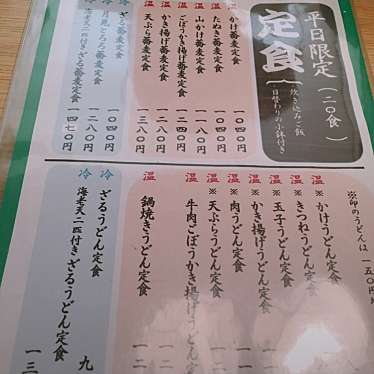 平日限定（二〇食）
定食
炊き込みご飯
日替わりの小鉢付き
温 かけ蕎麦定食
温 たぬき蕎麦定食
温 山かけ蕎麦定食 一一八〇円
温 ごぼうかき揚げ蕎麦定食 一二四〇円
温 かき揚げ蕎麦定食 一二八〇円
温 天ぷら蕎麦定食 一三八〇円
冷 ざる蕎麦定食 一〇四〇円
冷 月見とろろ蕎麦定食 一二八〇円
冷 海老天二匹付きざる蕎麦定食 一四七〇円
※印のうどんは一五〇円
温 ※かけうどん定食
温 ※きつねうどん定食
温 ※玉子うどん定食
温 ※かき揚げうどん定食
温 ※肉うどん定食
温 ※天ぷらうどん定食
温 牛肉ごぼうかき揚げうどん定食
温 鍋焼きうどん定食
冷 ざるうどん定食 九
冷 海老天二匹付きざるうどん定食 一三